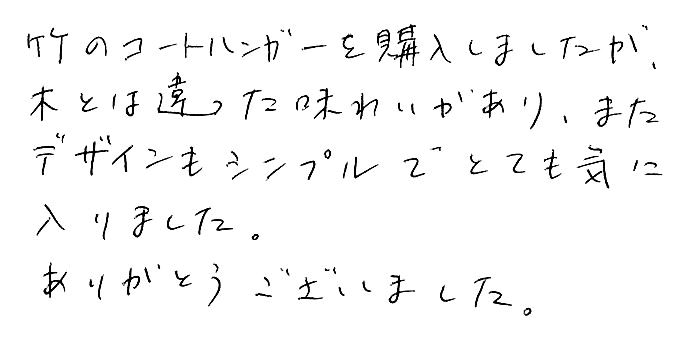 竹のコートハンガーを購入しましたが、
木とは違った味わいがあり、また
デザインもシンプルでとても気に
入りました。
ありがとうございました。